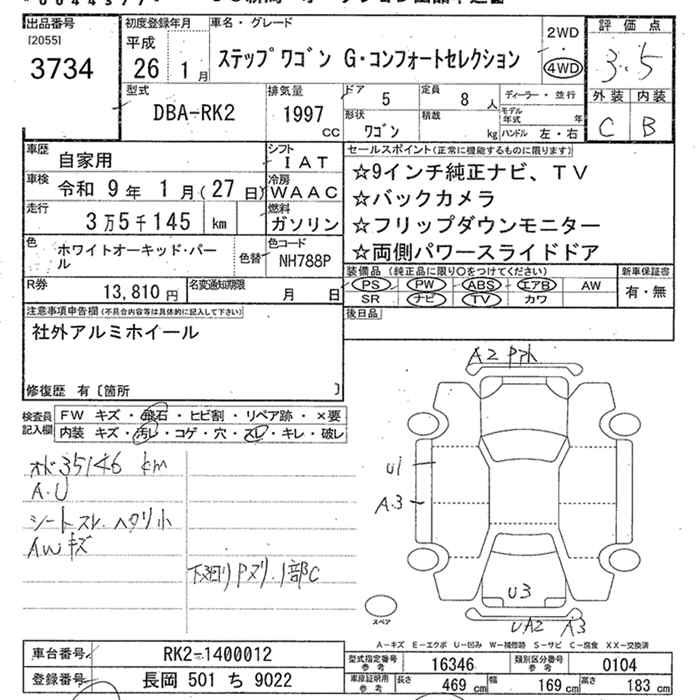 出品番号 [2055] 3734
初度登録年月 平成 26 1月
車名・グレード ステップワゴン G・コンフォートセレクション
2WD 4WD
評価点 3.5
外装 内装
C B
型式 DBA-RK2
排気量 1997 cc
ドア 5
定員 8人
形状 ワゴン
積載 kg
ディーラー・並行
モデル年式 年
ハンドル 左・右
車歴 自家用
シフト IAT
車検 令和 9年 1月(27日)
冷房 WAAC
走行 3万5千145 km
燃料 ガソリン
色 ホワイトオーキッド・パール
色替
色コード NH788P
R券 13,810円
名変通知期限 月 日
セールスポイント(正常に機能するものに限ります)
☆9インチ純正ナビ、TV
☆バックカメラ
☆フリップダウンモニター
☆両側パワースライドドア
装備品(純正品に限り○をつけてください)
PS PW ABS エアB AW
SR ナビ TV カワ
新車保証書 有・無
後日品
注意事項申告欄(不具合内容等は具体的に記入して下さい)
社外アルミホイール
修復歴 有〔箇所 〕
検査員記入欄
FW キズ・飛石・ヒビ割・リペア跡・×要
内装 キズ・汚レ・コゲ・穴・スレ・キレ・破レ
オド35146 km
A.U
シートスレ.ヘタリ小
AWキズ
下廻りPスリ.1部C
A2
U1
A3
U3
UA2 A3
スペア
A-キズ E-エクボ U-凹み W-補修跡 S-サビ C-腐食 XX-交換済
車台番号 RK2-1400012
登録番号 長岡 501 ち 9022
型式指定番号 参考 16346
類別区分番号 参考 0104
車庫証明用 参考 長さ 469 cm 幅 169 cm 高さ 183 cm